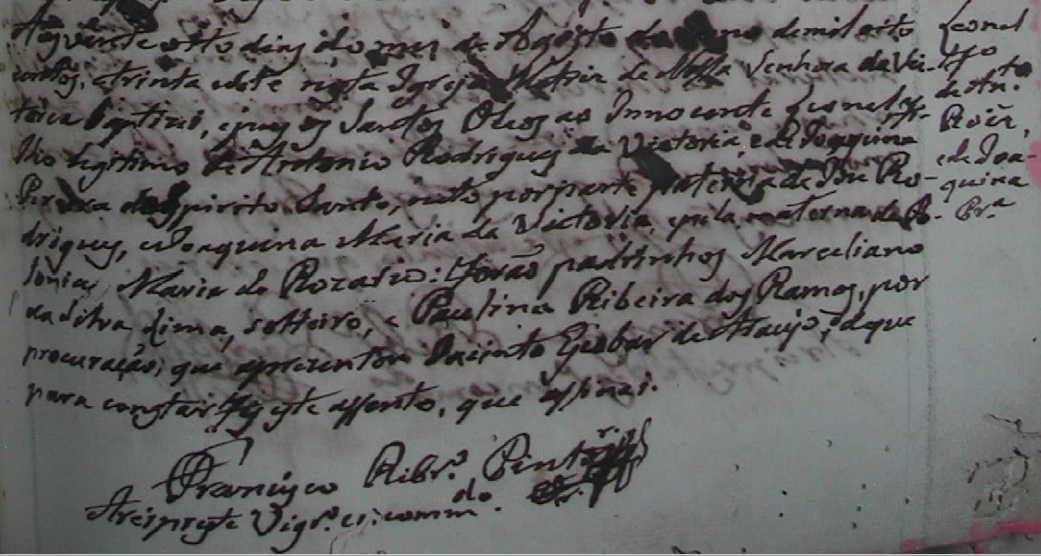 Aos vinte e oito dias do mes de Agosto do anno de mil oito
centos, e trinta e sete nesta Igreja Matriz de Nossa Senhora da Vic-
toria baptizei, e puz os Santos Oleos ao Innocente Leonel fi-
lho legitimo de Antonio Rodrigues da Victoria, e de Joaquina
Pereira do Espirito Santo, neto por parte paterna de José Ro-
drigues, e Joaquina Maria da Victoria, e pela materna de Po-
lonia Maria do Rozario: Forão padrinhos Marceliano
da Silva Lima, solteiro, e Paulina Ribeira dos Ramos, por
procuração, que aprezentou Jacinto Escobar de Araujo, do que
para constar fiz este assento, que assinei.
Francisco Ribr.º Pinto
Arcipreste Vigr.º comm.do
Leonel
fº
de An.º
Roiz,
e de Joa-
quina
Pr.ª